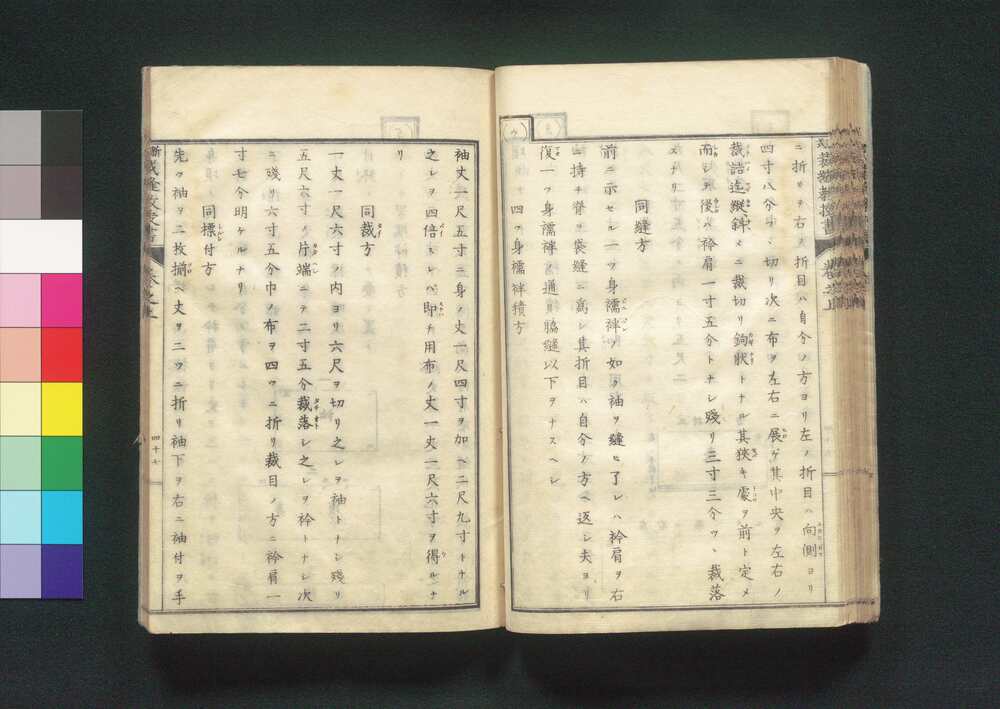 ニ折リヲ右ノ折目ハ自分ノ方ヨリ左ノ折目ハ向側ヨリ
四寸八分ヅヽ切リ次ニ布ヲ左右ニ展ゲ其中央ヲ左右ノ
裁詰迄縦斜メニ裁切リ鉤状トナル其狭キ處ヲ前ト定メ
而シテ後ハ衿肩一寸五分トナシ残リ三寸三分ヅヽ裁落
スナリ
同縫方
前ニ示セル一ツ身襦袢ノ如ク袖ヲ縫ヒ了レハ衿肩ヲ右
ニ持チ脊ヲ袋縫ニ為シ其折目ハ自分ノ方ヘ返シ夫ヨリ
復一ツ身襦袢ノ通リ脇縫以下ヲナスヘシ
四ツ身襦袢積方
袖丈一尺五寸ニ身ノ丈一尺四寸ヲ加ヘ二尺九寸トナル
之レヲ四倍スレバ即チ用布ノ丈一丈一尺六寸ヲ得ルナ
リ
同裁方
一丈一尺六寸ノ内ヨリ六尺ヲ切リ之レヲ袖トナシ残リ
五尺六寸ノ片端ニテ二寸五分裁落シ之レヲ衿トナシ次
ニ残リ六寸五分巾ノ布ヲ四ツニ折リ裁目ノ方ニ衿肩一
寸七分明ケルナリ
同標付方
先ツ袖ヲ二枚揃ヘ丈ヲ二ツニ折リ袖下ヲ右ニ袖付ヲ手
裁縫教授書
巻之上
四十七